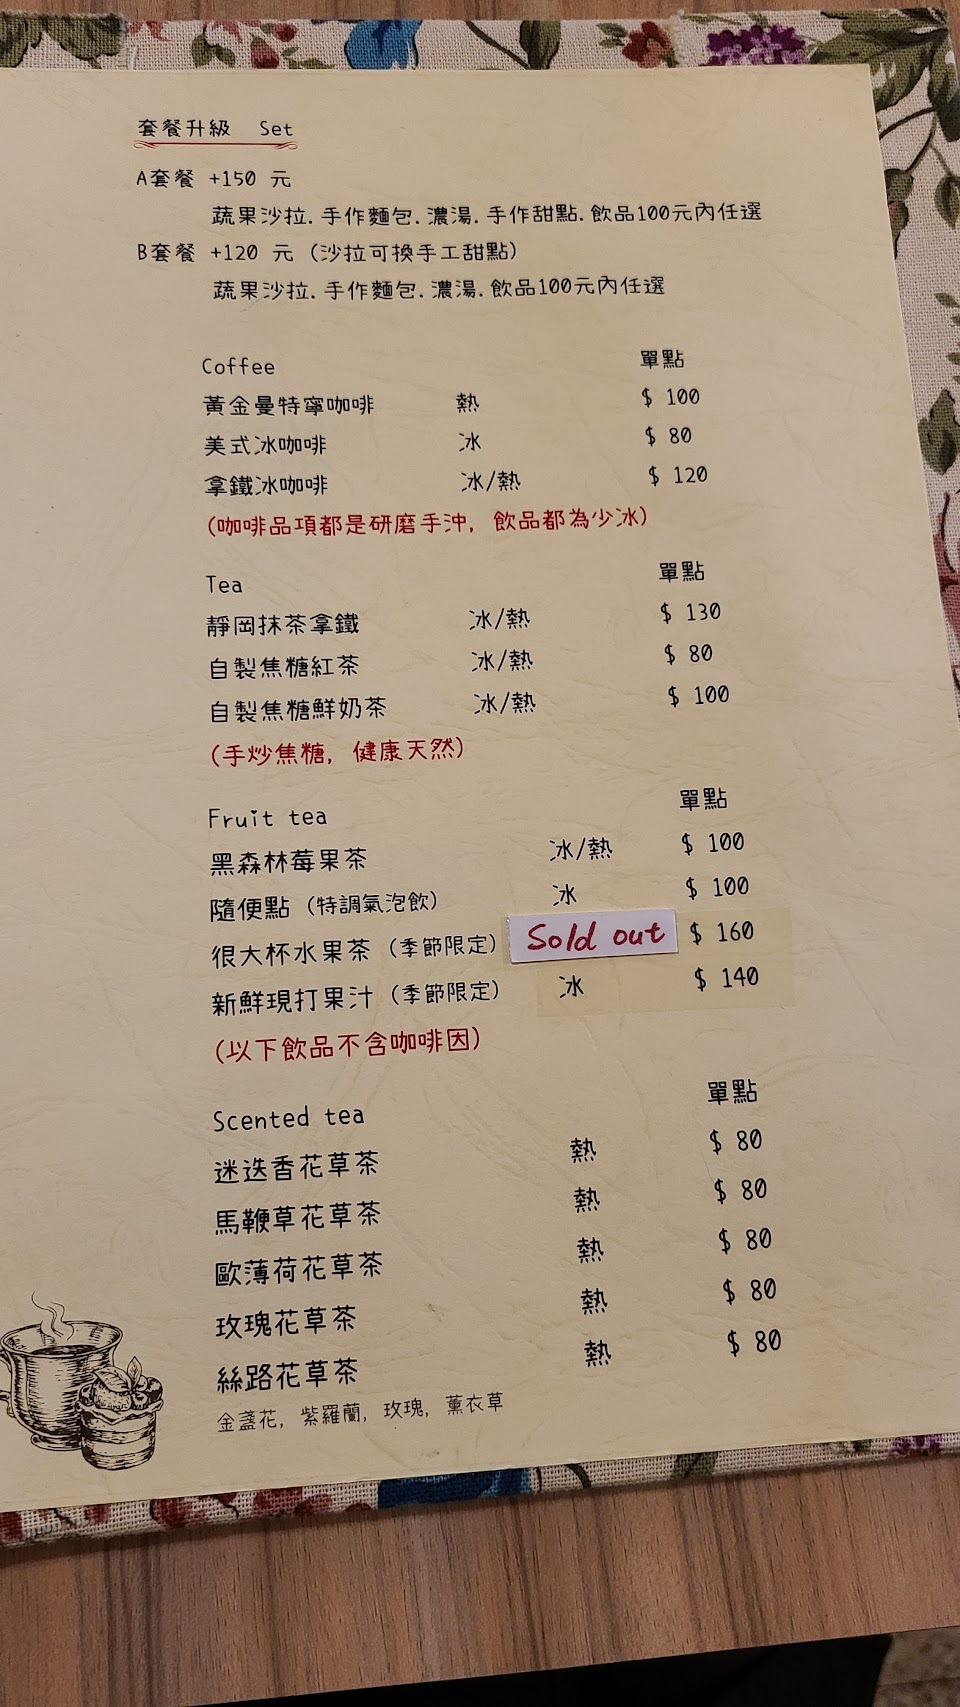 套餐升級 Set
A套餐 +150 元
蔬果沙拉.手作麵包.濃湯.手作甜點.飲品100元內任選
B套餐 +120 元 (沙拉可換手工甜點)
蔬果沙拉.手作麵包.濃湯.飲品100元內任選
Coffee 單點
黃金曼特寧咖啡 熱 $ 100
美式冰咖啡 冰 $ 80
拿鐵冰咖啡 冰/熱 $ 120
(咖啡品項都是研磨手沖, 飲品都為少冰)
Tea 單點
靜岡抹茶拿鐵 冰/熱 $ 130
自製焦糖紅茶 冰/熱 $ 80
自製焦糖鮮奶茶 冰/熱 $ 100
(手炒焦糖, 健康天然)
Fruit tea 單點
黑森林莓果茶 冰/熱 $ 100
隨便點 (特調氣泡飲) 冰 $ 100
很大杯水果茶 (季節限定) Sold out $ 160
新鮮現打果汁 (季節限定) 冰 $ 140
(以下飲品不含咖啡因)
Scented tea 單點
迷迭香花草茶 熱 $ 80
馬鞭草花草茶 熱 $ 80
歐薄荷花草茶 熱 $ 80
玫瑰花草茶 熱 $ 80
絲路花草茶 熱 $ 80
金盞花, 紫羅蘭, 玫瑰, 薰衣草